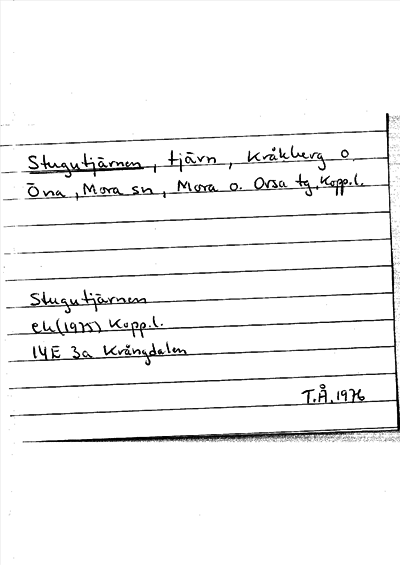 Stugutjärnen, tjärn, Kråkberg o.
Öna, Mora sn, Mora o. Orsa tg, Kopp.l.
Stugutjärnen
ek(1975) Kopp.l.
14E 3a Krångdalen
T.Å. 1976